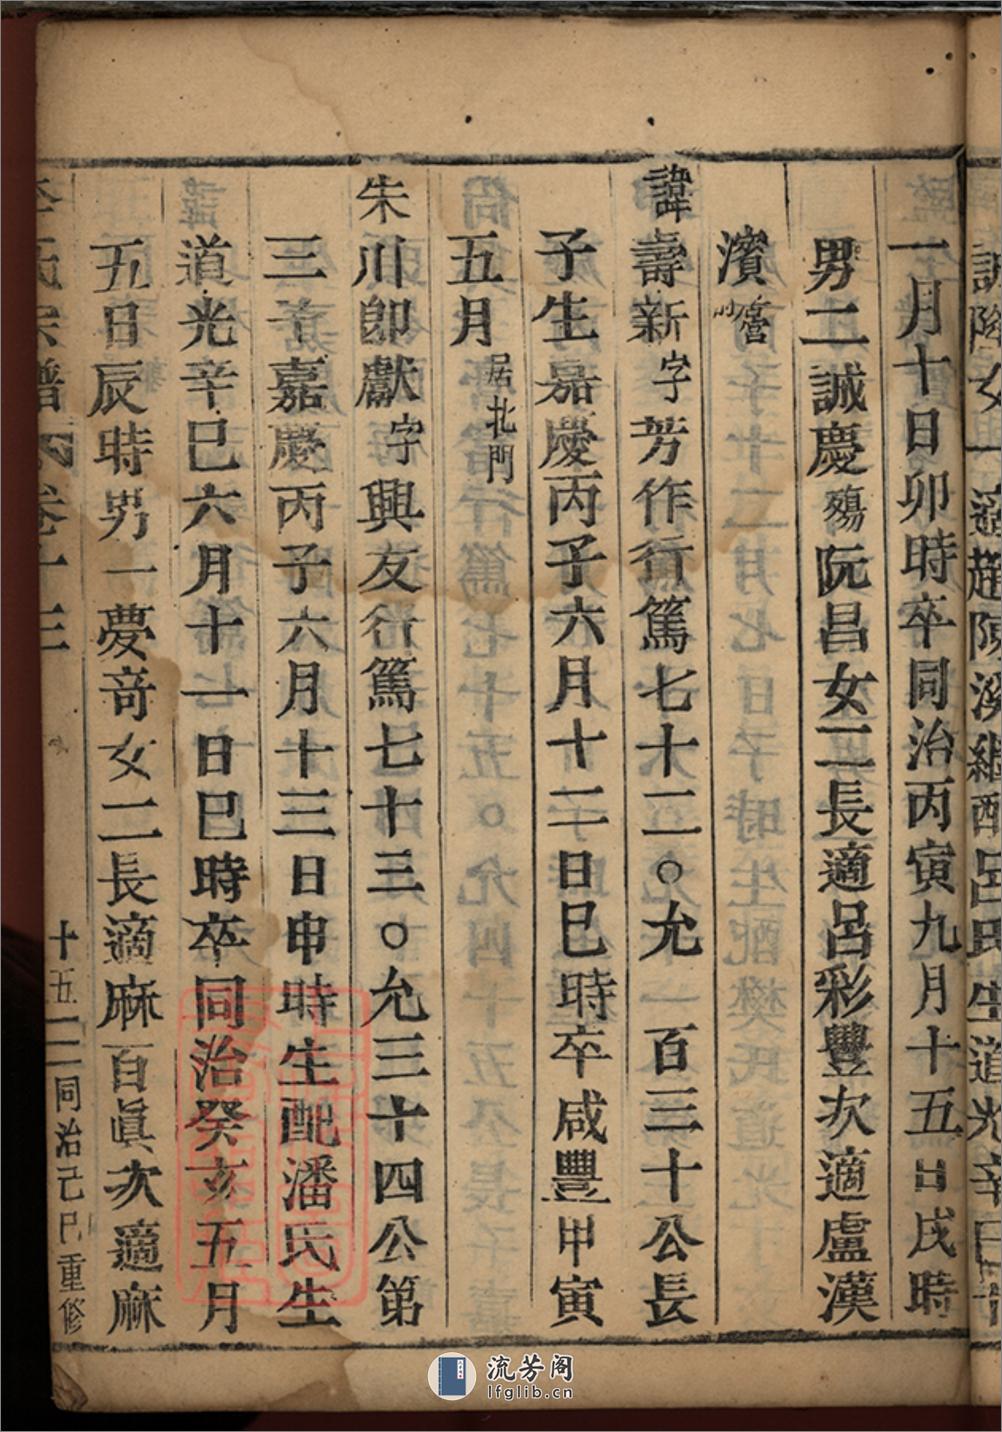 誠陞女一適趙陳溪繼配呂氏生道光辛巳十
一月十日卯時卒同治丙寅九月十五日戌時
男二誠慶殤阮昌女二長適呂彩豐次適盧漢
濱
諱壽新字芳作行篤七十二〇允一百三十公長
子生嘉慶丙子六月十二日巳時卒咸豐甲寅
五月居北門
朱川卽獻字興友行篤七十三〇允三十四公第
三子嘉慶丙子六月十三日申時生配潘氏生
道光辛巳六月十一日巳時卒同治癸亥五月
五日辰時男一夢奇女二長適麻百眞次適麻
氏宗譜 卷十三 十五 同治己巳重修
流芳阁
lfglib.cn